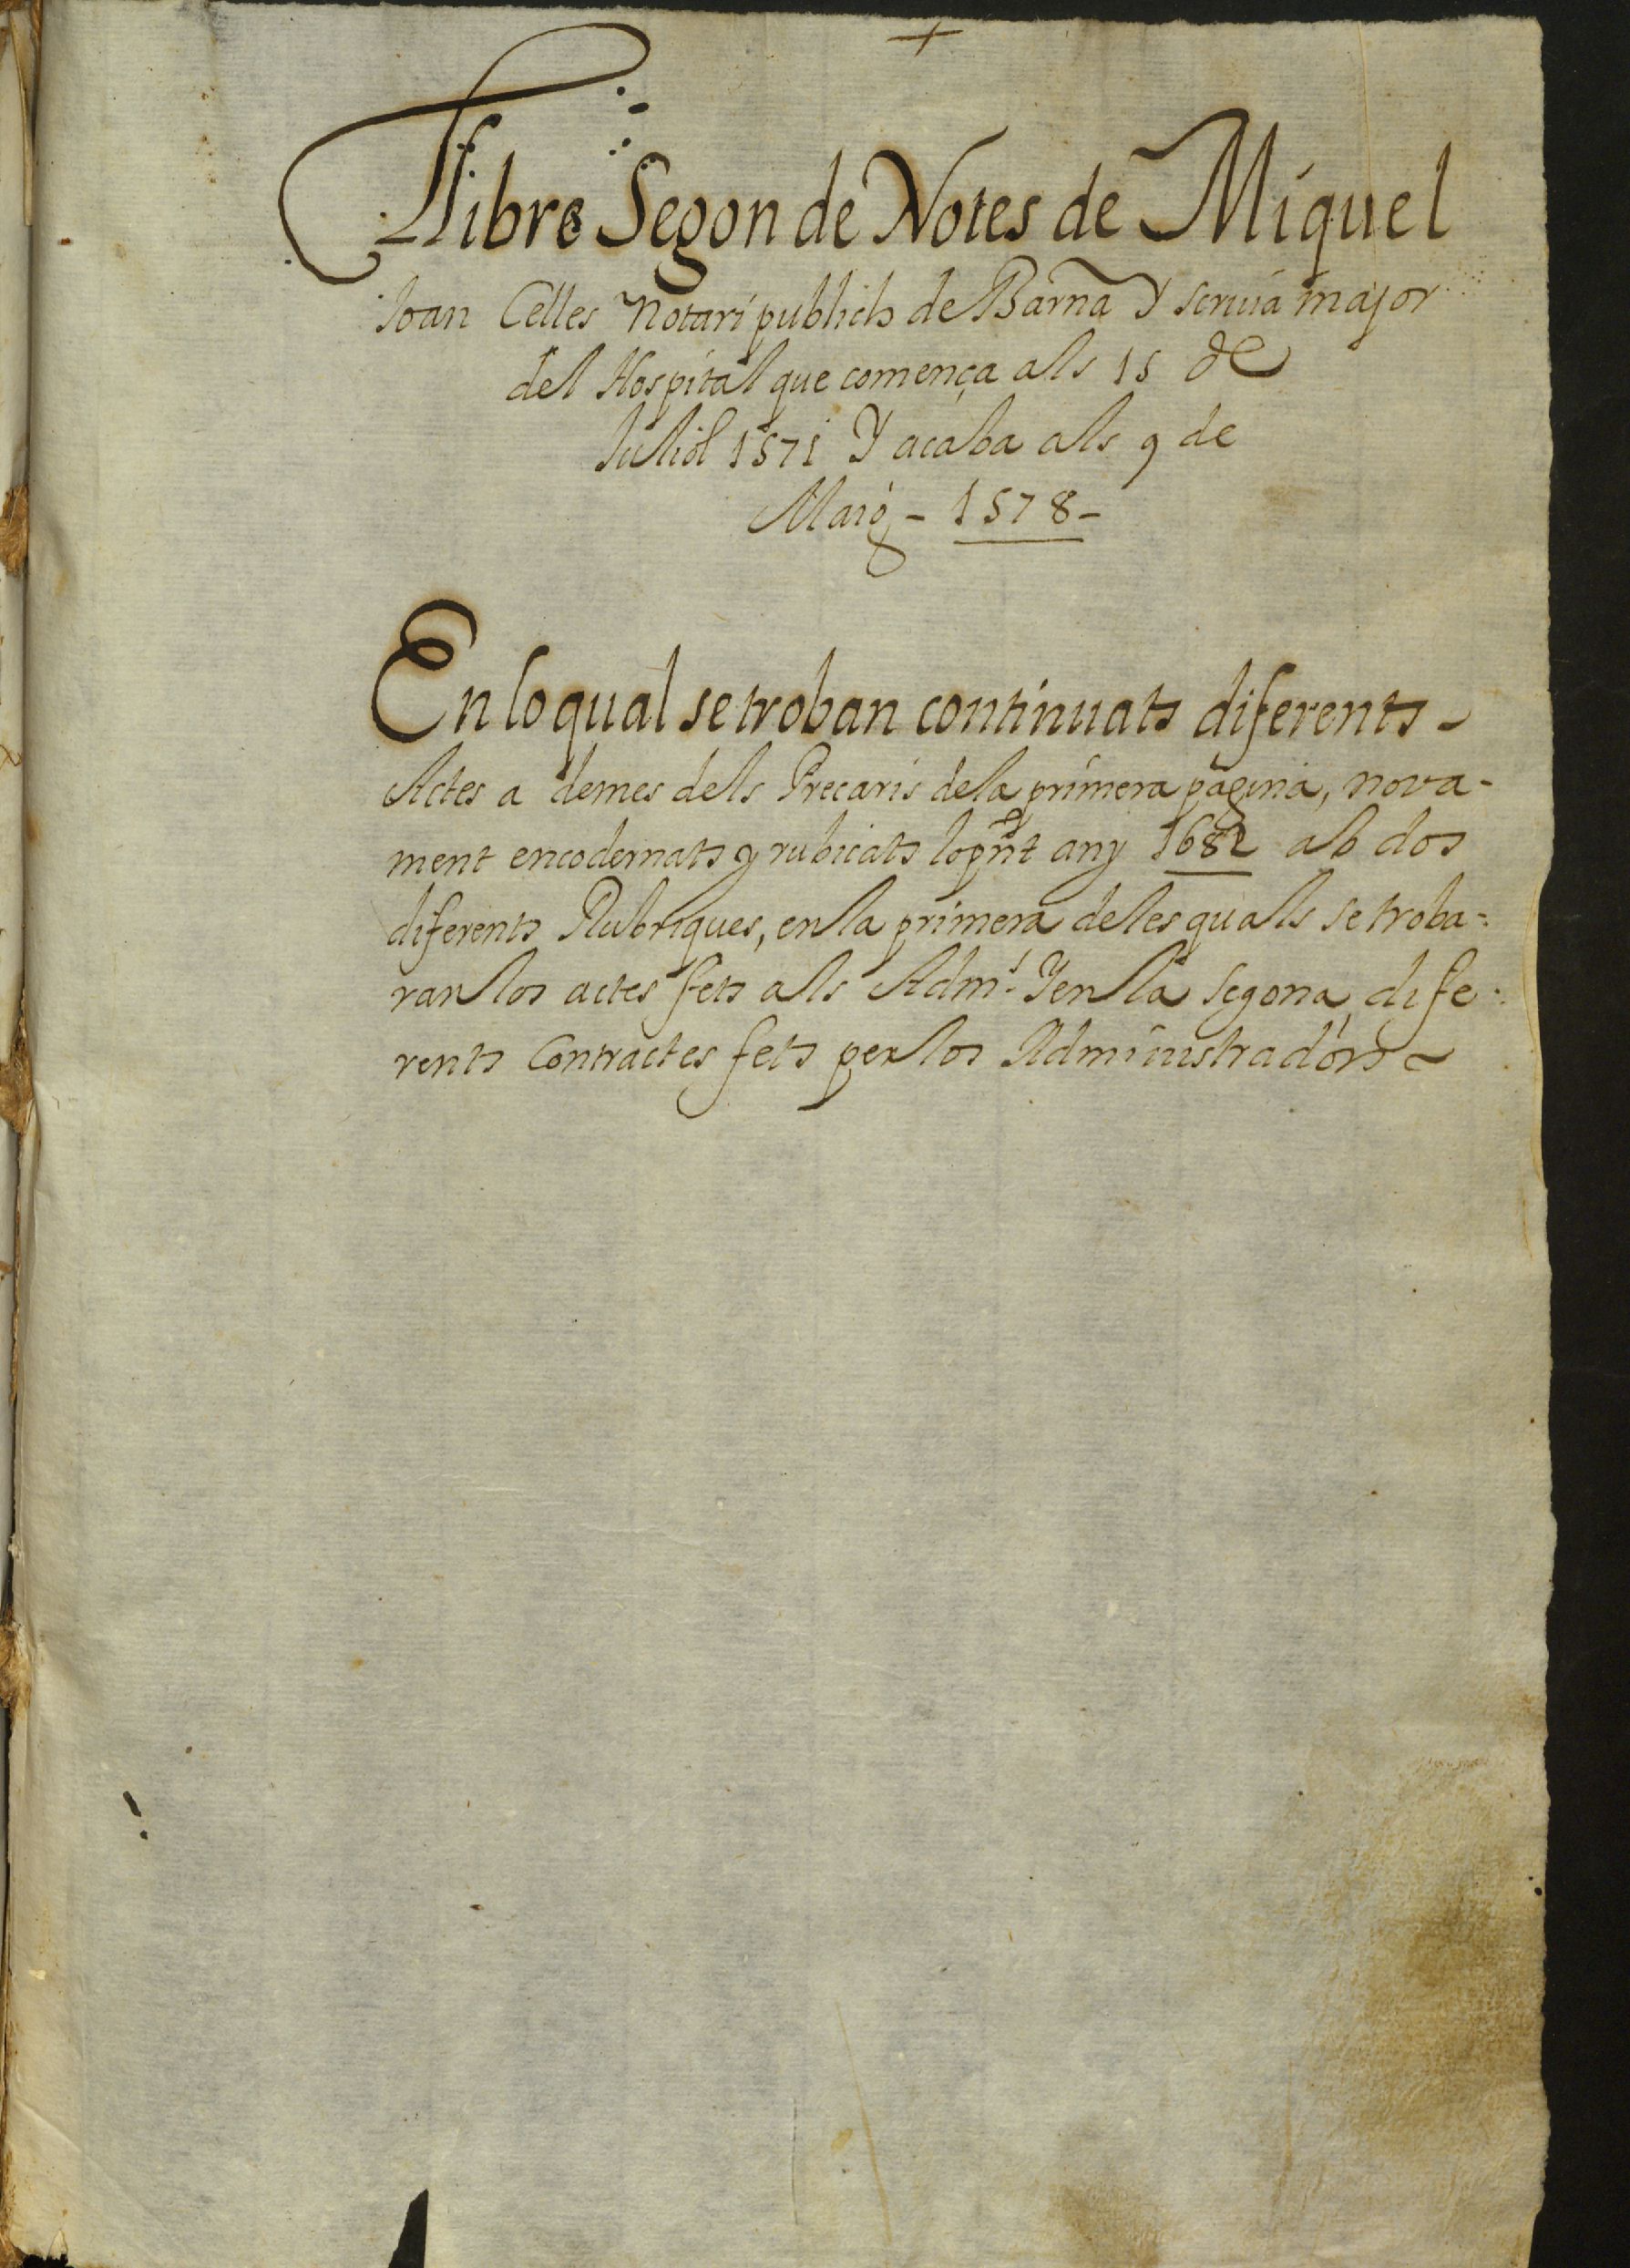 +
Llibre Segon de Notes de Miquel
Joan Celles Notari publich de Barna Y scriua major
del Hospital que comença als 15 de
Juliol 1571 Y acaba als 9 de
Maig - 1578 -
En lo qual se troban continuats diferents
Actes a demes dels Precaris de la primera pagina, nova-
ment encodernats y rubicats lo pñt any 1682 ab dos
diferents Rubriques, en la primera de les quals se troba=
ran los actes fets als Adm.ˢ Y en la segona, dife=
rents Contractes fets per los Administradors